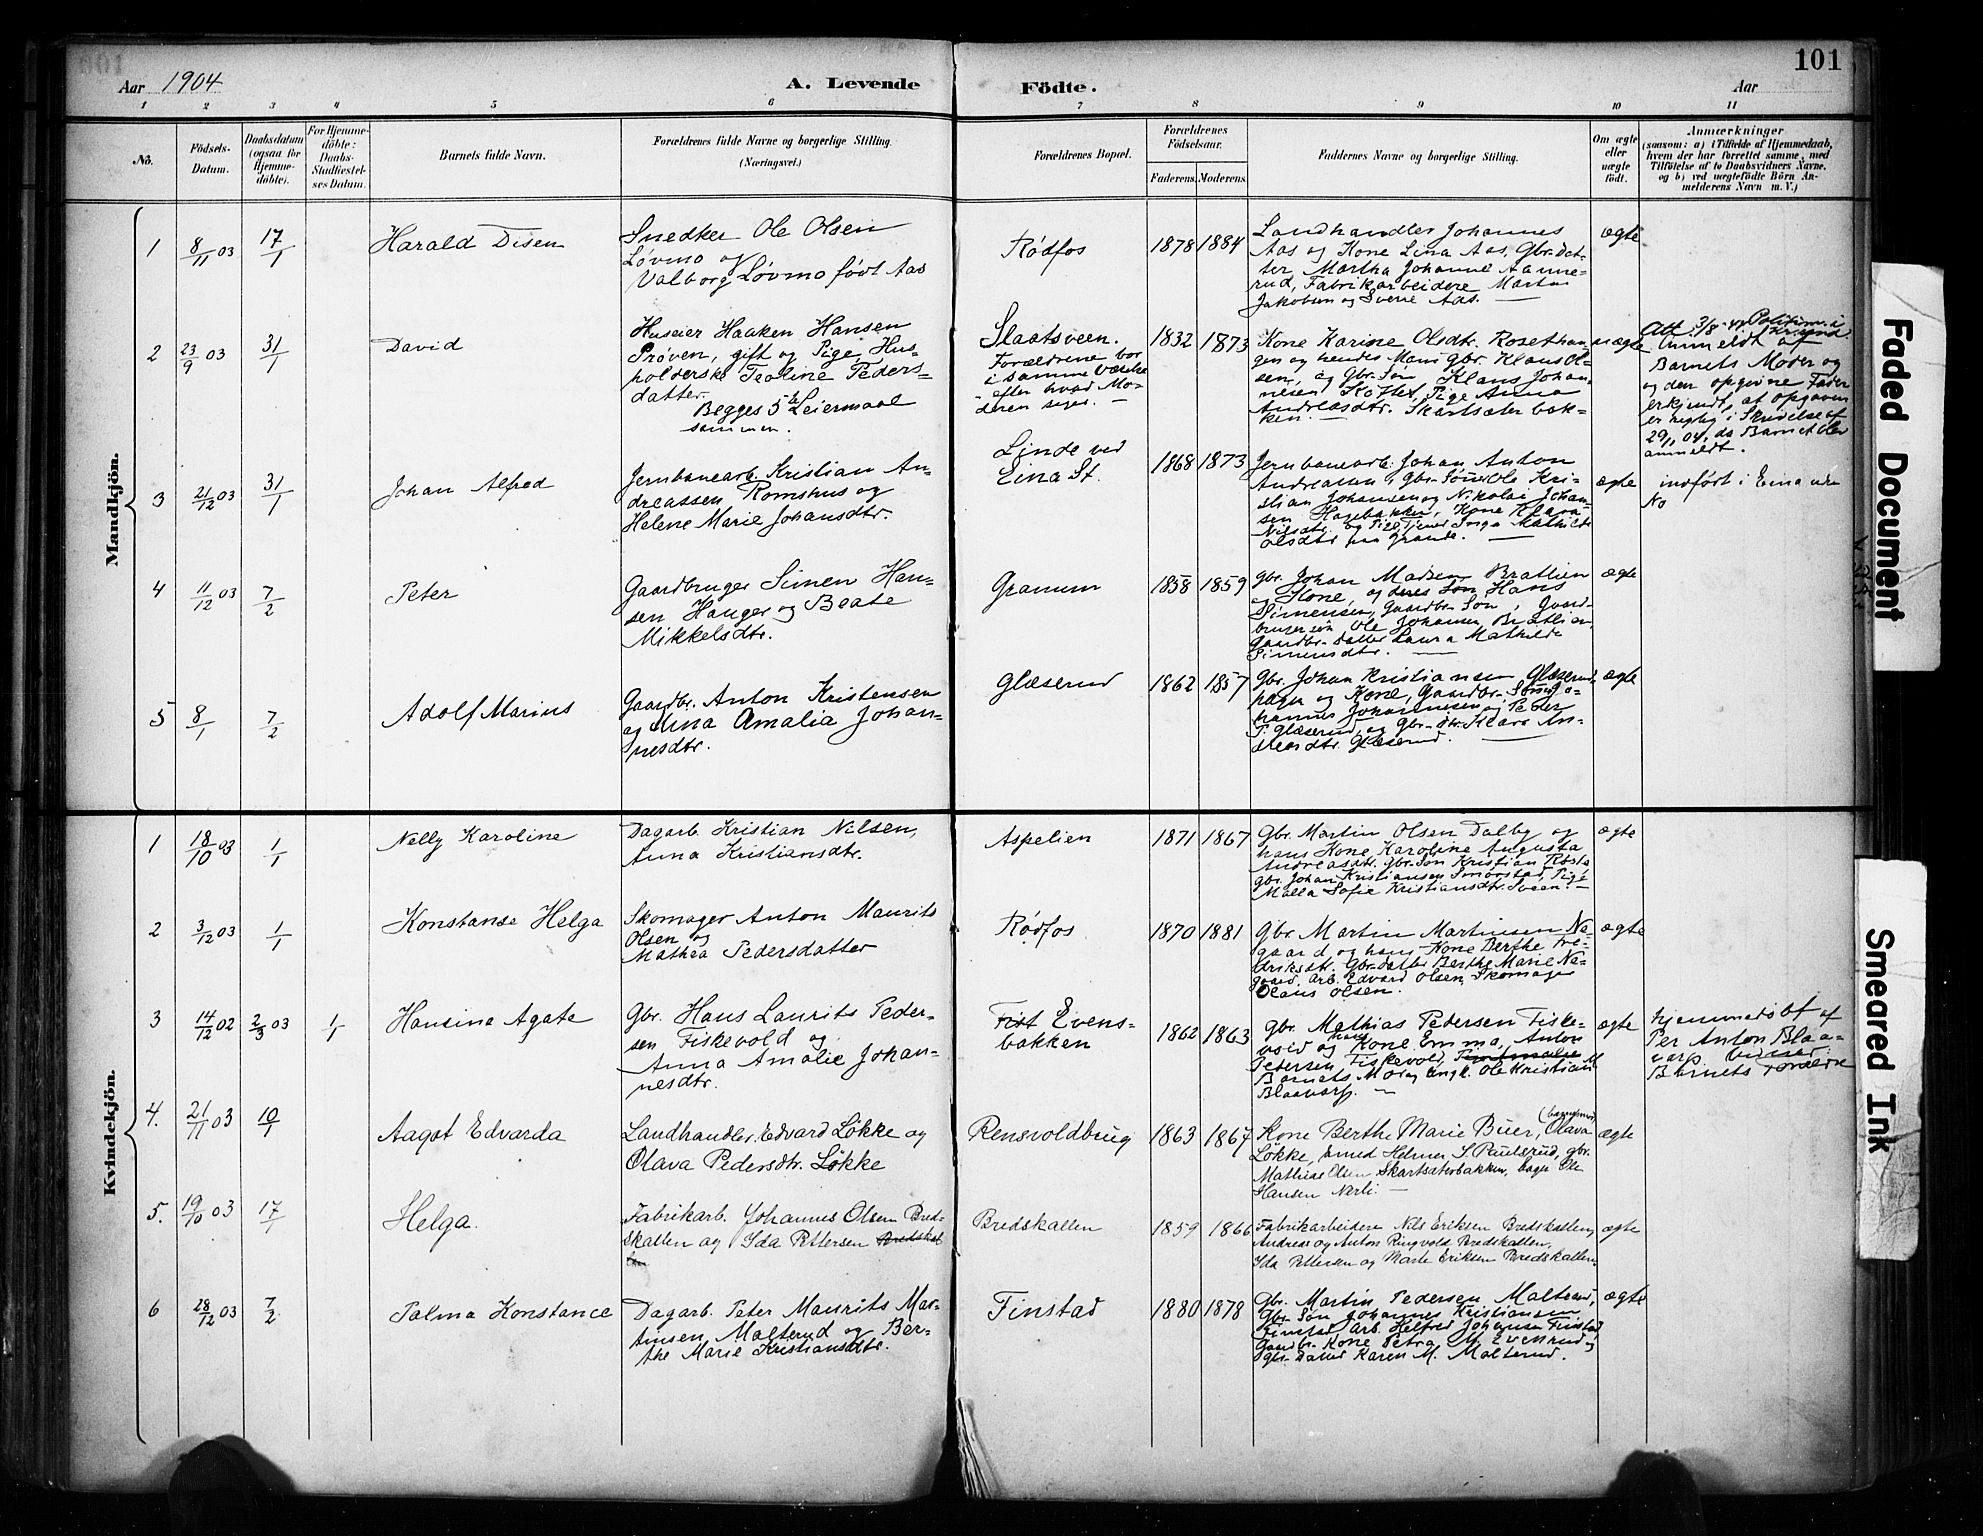 101
Aar 1904
A. Levende
Födte.
Aar
1 2 3 4 5 6 7 8 9 10 11
No.
Födsels-
Datum.
Daabsdatum
(ogsaa for
Hjemme-
döbte).
For Hjemme-
döbte:
Daabs-
Stadfæstel-
ses Datum.
Barnets fulde Navn.
Forældrenes fulde Navne og borgerlige Stilling.
(Næringsvei.)
Forældrenes Bopæl.
Forældrenes
Födselsaar.
Faderens. Moderens.
Faddernes Navne og borgerlige Stilling.
Om ægte
eller
uægte
födt.
Anmærkninger
(saasom: a) i Tilfælde af Hjemmedaab,
hvem der har forrettet samme, med
Tilföielse af to Daabsvidners Navne,
og b) ved uægtefödte Börn An-
melderens Navn m. V.)
Mandkjön.
1
8/11 03
17/1
Harald Disen
Snedker Ole Olsen
Løvmo og
Valborg Løvmo født Aas
Rødfos
1878
1884
Landhandler Johannes
Aas og Kone Lina Aas, Gbr. Dat-
ter Martha Johanne Aanne-
rud, Fabrikarbeidere Martin
Jakobsen og Sverre Aas.
ægte
2
23/9 03
31/1
David
Huseier Haaken Hansen
Prøven, gift og Pige, Hus-
holderske Teoline Peders-
datter.
Begges 5te Leiermaal
sammen.
Slaatsveen.
Forældrene bor
i samme Værelse
efter hvad Mo-
deren siger.
1832
1873
Kone Karine Olsdtr. Rosethau-
gen og hendes Mand gbr. Klaus Ol-
sen, og Gbr. Søn Klaus Johan-
nesen Koffet, Pige Anna
Andreasdtr. Skartsæterbak-
ken.
uægte
Anmeldt af
Barnets Moder og
og den opgivne Fader
erkjendt, at opgaven
er rigtig i Skrivelse af
29/1 04, da Barnet blev
anmeldt.
3
21/12 03
31/1
Johan Alfred
Jernbanearb. Kristian An-
dreassen Romshus og
Helene Marie Johansdtr.
Linde ved
Eina St.
1868
1873
Jernbanearb. Johan Anton
Andreassen, Gbr. Søn Ole Kri-
stian Johansen og Nikolai Johan-
sen Hagebakken, Kone Klara
Nilsdtr. og Pige, Tjener Inga Mathilde
Olsdtr. paa Grande.
ægte
indført i Eina
No
4
11/12 03
7/2
Peter
Gaardbruger Simen Han-
sen Hauger og Beate
Mikkelsdtr.
Granum
1858
1859
gbr. Johan Madsen Bratlien
og Kone, og deres Søn Hans
Simensen, Gaardbr. Søn, Gaard-
brugersøn Ole Johansen Bratlien,
Gaardbr. Datter Laura Mathilde
Simensdtr.
ægte
5
8/1
7/2
Adolf Marius
Gaardbr. Anton Kristensen
og Lina Amalia Johan-
nesdtr.
Glæserud
1862
1857
Gbr. Johan Kristiansen Glæserud-
hagen og Kone, Gaardbr. Søn Jo-
hannes Johannesen, Peder
P. Glæserud, og Gbr. dtr. Klara An-
dreasdtr. Glæserud.
ægte
Kvindekjön.
1
18/10 03
1/1
Nelly Karoline
Dagarb. Kristian Nilsen,
Anna Kristiansdtr.
Aspelien
1871
1867
Gbr. Martin Olsen Dalby og
hans Kone Karoline Augusta
Andreasdtr. gbr. Søn Kristian Roste
gbr. Johan Kristiansen Smørstad, Pige
Malla Sofie Kristiansdtr. Sveen.
ægte
2
3/12 03
1/1
Konstanse Helga
Skomager Anton Maurits
Olsen og
Mathea Pedersdatter
Rødfos
1870
1881
Gbr. Martin Martinsen Næ-
gaard og hans Kone Berthe Fre-
driksdtr. Gbr. datter Berthe Marie Næ-
gaard, Arb. Edvard Olsen, Skomager
Olaus Olsen.
ægte
3
14/12 02
2/3 03
1/1
Hansine Agate
Gbr. Hans Laurits Peder-
sen Fiskevold og
Anna Amalie Johan-
nesdtr.
Fist Evens-
bakken
1862
1863
gbr. Mathias Pedersen Fiske-
vold og hans Kone Emma, Anton
Petersen Fiskevold,
Barnets Mor og ungk. Ole Kristian M
Blaavarp.
ægte
hjemmedøbt af
Per Anton Blaa-
varp.
Barnets forældre
4.
21/11 03
10/1
Aagot Edvarda
Landhandler Edvard Løkke og
Olava Pedersdtr. Løkke
Rensvoldbrug
1863
1867
Kone Berthe Marie Buer, Olava (barnets mor)
Løkke, Smed Helmer S. Paulsrud, gbr.
Mathias Olsen Skartsæterbakken, bager Ole
Hansen Nerli.
ægte
5.
19/10 03
17/1
Helga.
Fabrikarb. Johannes Olsen Bred-
skallen og Ida Pettersen Bredskal
len
Bredskallen
1859
1866
Fabrikarbeidere Nils Eriksen Bredskallen,
Andreas og Anton Ringvold Bredskallen,
Ida Pettersen og Marte Eriksen Bredskallen.
ægte
6
28/12 03
7/2
Palma Konstance
Dagarb. Peter Maurits Mar-
tinsen Malterud og Ber-
the Marie Kristiansdtr.
Finstad
1880
1878
Gbr. Martin Pedersen Malterud,
Gbr. Søn Johannes Kristiansen
Finstad, Arb. Helfred Johansen Finstad
Gaardbr. Kone Petra M. Evenrud,
gbr. datter Karen M. Malterud.
ægte
Faded Document
Smeared Ink